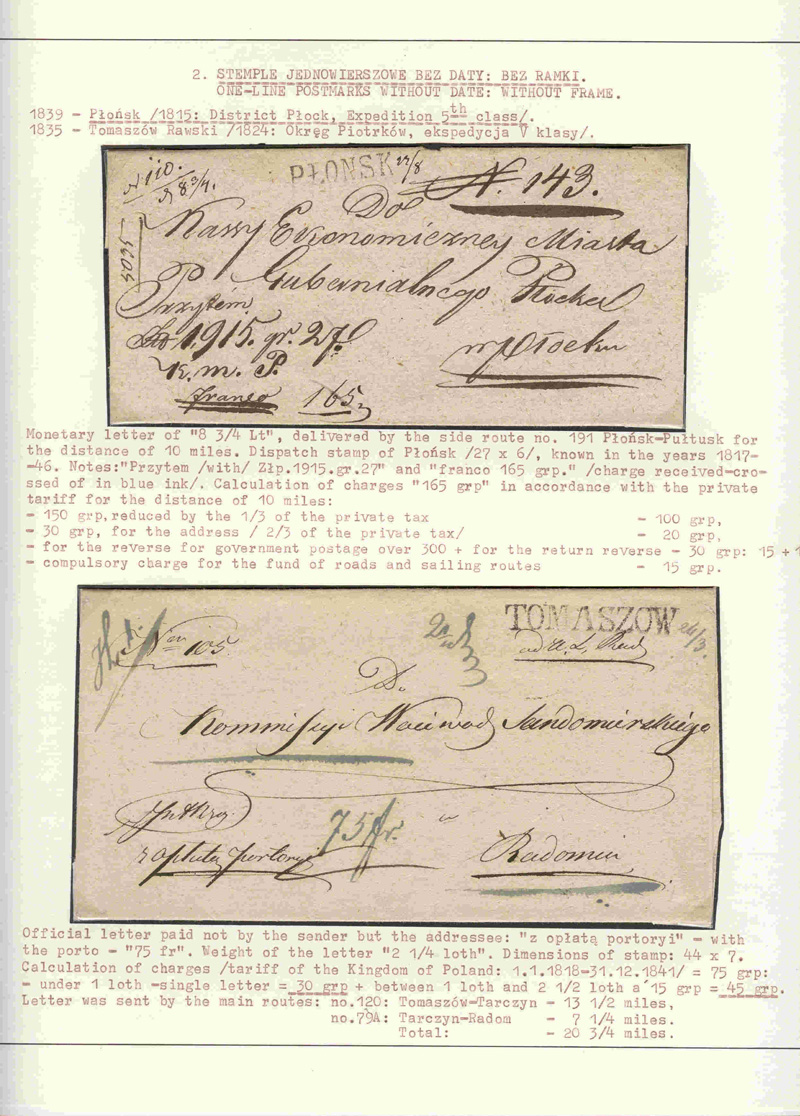 2. STEMPLE JEDNOWIERSZOWE BEZ DATY: BEZ RAMKI.
ONE-LINE POSTMARKS WITHOUT DATE: WITHOUT FRAME.
1839 - Płońsk /1815: District Płock, Expedition 5th class/.
1835 - Tomaszów Rawski /1824: Okręg Piotrków, ekspedycja V klasy/.
N 110.
PŁOŃSK 27/8
N. 143.
Do
Kassy Ekonomiczney Miasta
Gubernialnego Płocka
Przytem
1915. gr. 27
w Płocku
K. m. P.
franco 165.
Monetary letter of "8 3/4 Lt", delivered by the side route no. 191 Płońsk-Pułtusk for
the distance of 10 miles. Dispatch stamp of Płońsk /27 x 6/, known in the years 1817-
-46. Notes:"Przytem /with/ Złp.1915.gr.27" and "franco 165 grp." /charge received-cro-
ssed of in blue ink/. Calculation of charges "165 grp" in accordance with the private
tariff for the distance of 10 miles:
- 150 grp,reduced by the 1/3 of the private tax - 100 grp,
- 30 grp, for the address / 2/3 of the private tax/ - 20 grp,
- for the reverse for government postage over 300 + for the return reverse - 30 grp: 15 + 1
- compulsory charge for the fund of roads and sailing routes - 15 grp.
TOMASZOW 24/3.
Nro 105
Do
Kommissyi Woiewod Sandomierskiego
75 fr.
w
z opłatą portoryi
Radomiu
Official letter paid not by the sender but the addressee: "z opłatą portoryi" - with
the porto - "75 fr". Weight of the letter "2 1/4 loth". Dimensions of stamp: 44 x 7.
Calculation of charges /tariff of the Kingdom of Poland: 1.1.1818-31.12.1841/ = 75 grp:
- under 1 loth -single letter = 30 grp + between 1 loth and 2 1/2 loth a´15 grp = 45 grp.
Letter was sent by the main routes: no.120: Tomaszów-Tarczyn - 13 1/2 miles,
no.79A: Tarczyn-Radom - 7 1/4 miles.
Total: - 20 3/4 miles.